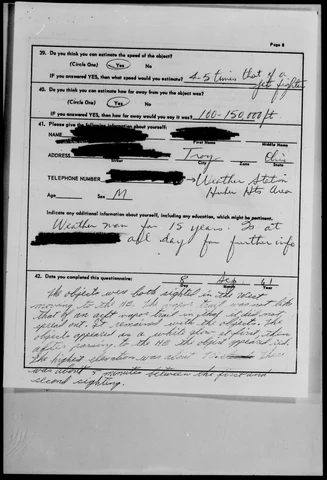 Page 8
39. Do you think you can estimate the speed of the object?
(Circle One) Yes No
IF you answered YES, then what speed would you estimate? 4-5 times that of a
jet fighter
40. Do you think you can estimate how far away from you the object was?
(Circle One) Yes No
IF you answered YES, then how far away would you say it was? 100-150,000 ft
41. Please give the following information about yourself:
NAME
First Name Middle Name
ADDRESS Troy Ohio
Street City Zone State
TELEPHONE NUMBER → Weather Station
Huber Hts Area
Age Sex M
Indicate any additional information about yourself, including any education, which might be pertinent.
Weather man for 15 years. Is at
all day for further info
42. Date you completed this questionnaire: 8 Sep 61
Day Month Year
The objects were both sighted in the West
moving to the NE. The vapor trail was not like
that of an acft vapor trail in that it did not
spread out. It remained with the objects. The
objects appeared as a white silver at first, then
after passing to the NE the object appeared red.
The highest elevation was about There
was about minutes between the first and
second sighting.